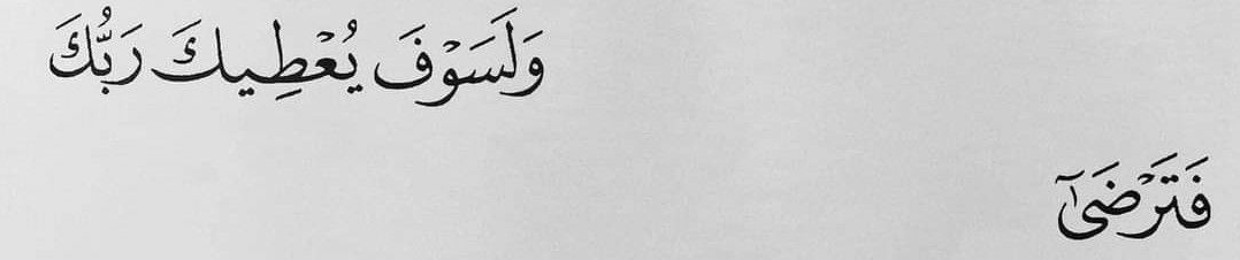 وَلَسَوْفَ يُعْطِيكَ رَبُّكَ
فَتَرْضَىٰٓ